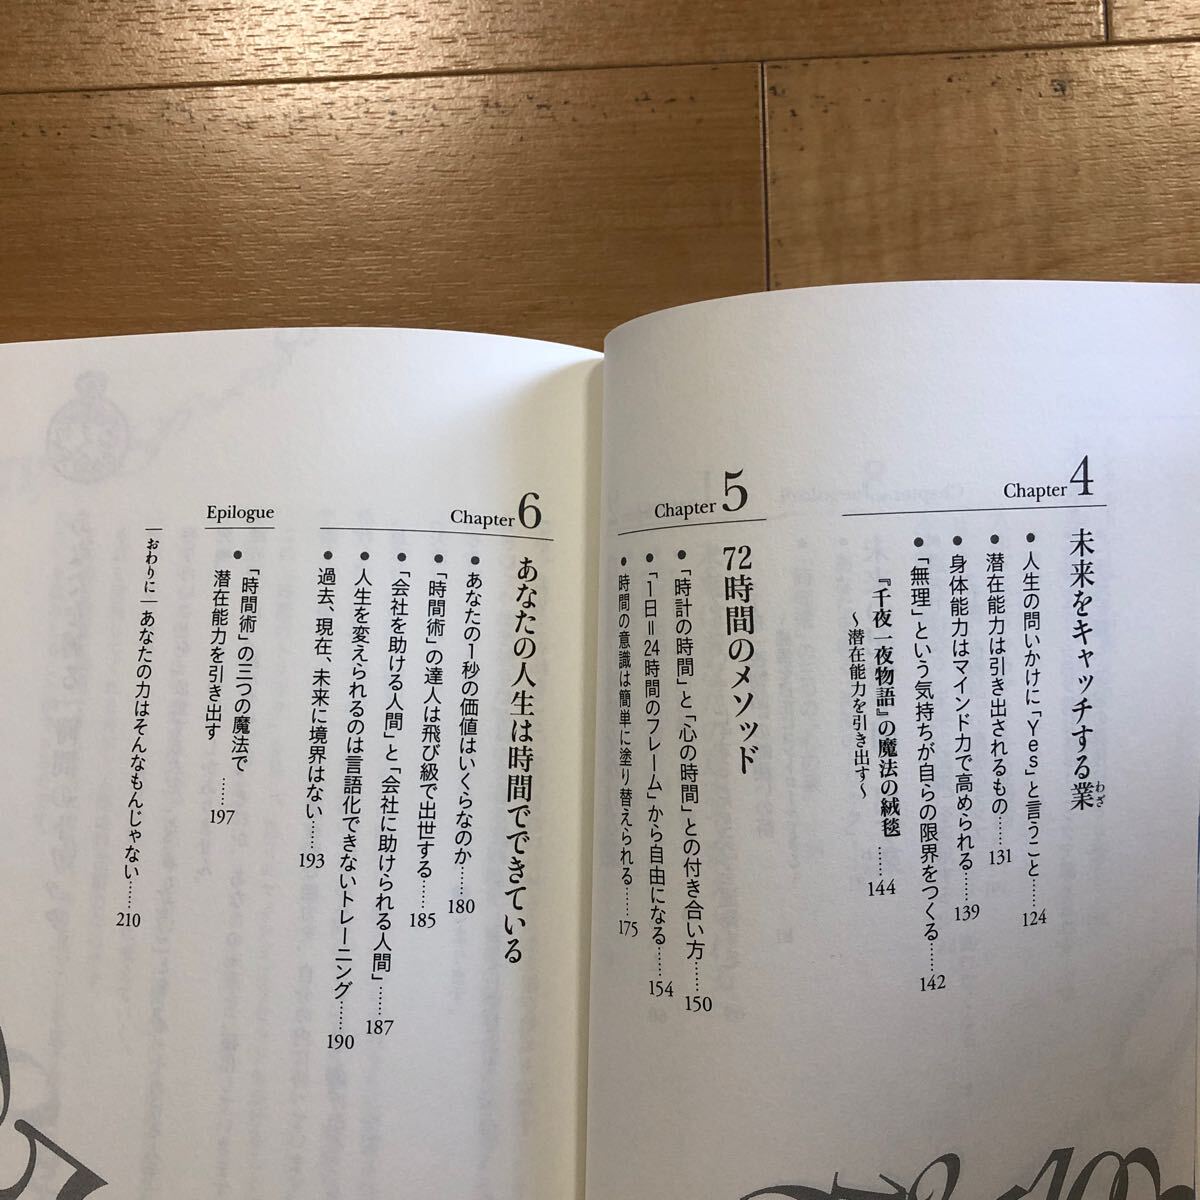 Chapter 4
未来をキャッチする業
わざ
● 人生の問いかけに「Yes」と言うこと……124
● 潜在能力は引き出されるもの……131
● 身体能力はマインド力で高められる……139
● 「無理」という気持ちが自らの限界をつくる……142
『千夜一夜物語』の魔法の絨毯
～潜在能力を引き出す～……144
Chapter 5
72時間のメソッド
● 「時計の時間」と「心の時間」との付き合い方……150
● 「1日＝24時間のフレーム」から自由になる……154
● 時間の意識は簡単に塗り替えられる……175
Chapter 6
あなたの人生は時間でできている
● あなたの1秒の価値はいくらなのか……180
● 「時間術」の達人は飛び級で出世する……185
● 「会社を助ける人間」と「会社に助けられる人間」……187
● 人生を変えられるのは言語化できないトレーニング……190
● 過去、現在、未来に境界はない……193
Epilogue
● 「時間術」の三つの魔法で
潜在能力を引き出す……197
｜おわりに｜あなたの力はそんなもんじゃない……210